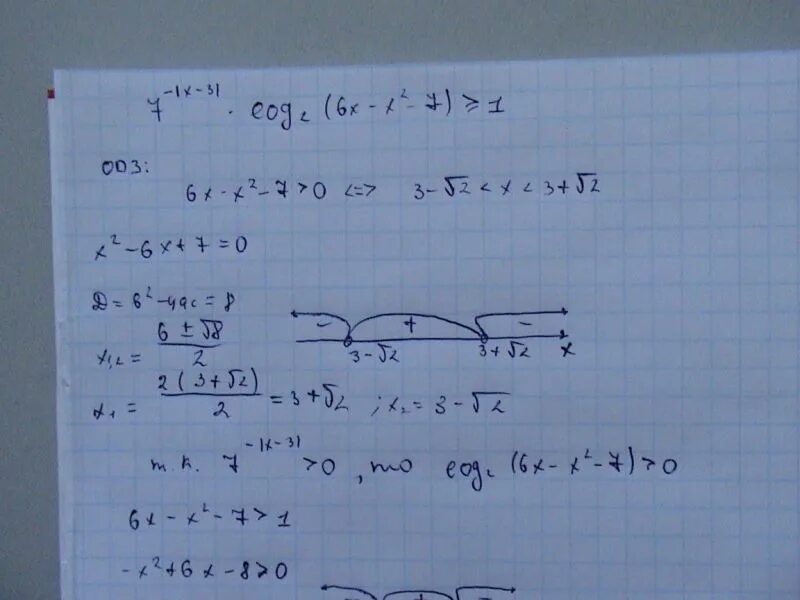 7^{-|x-3|} · log₂ (6x - x² - 7) ≥ 1
ОДЗ:
6x - x² - 7 > 0 <=> 3 - √2 < x < 3 + √2
x² - 6x + 7 = 0
Д = b² - 4ac = 8
x₁,₂ = (6 ± √8)/2
- + -
3 - √2 3 + √2 x
x₁ = 2(3 + √2)/2 = 3 + √2 ; x₂ = 3 - √2
т.к. 7^{-|x-3|} > 0, то log₂ (6x - x² - 7) > 0
6x - x² - 7 > 1
-x² + 6x - 8 > 0
+